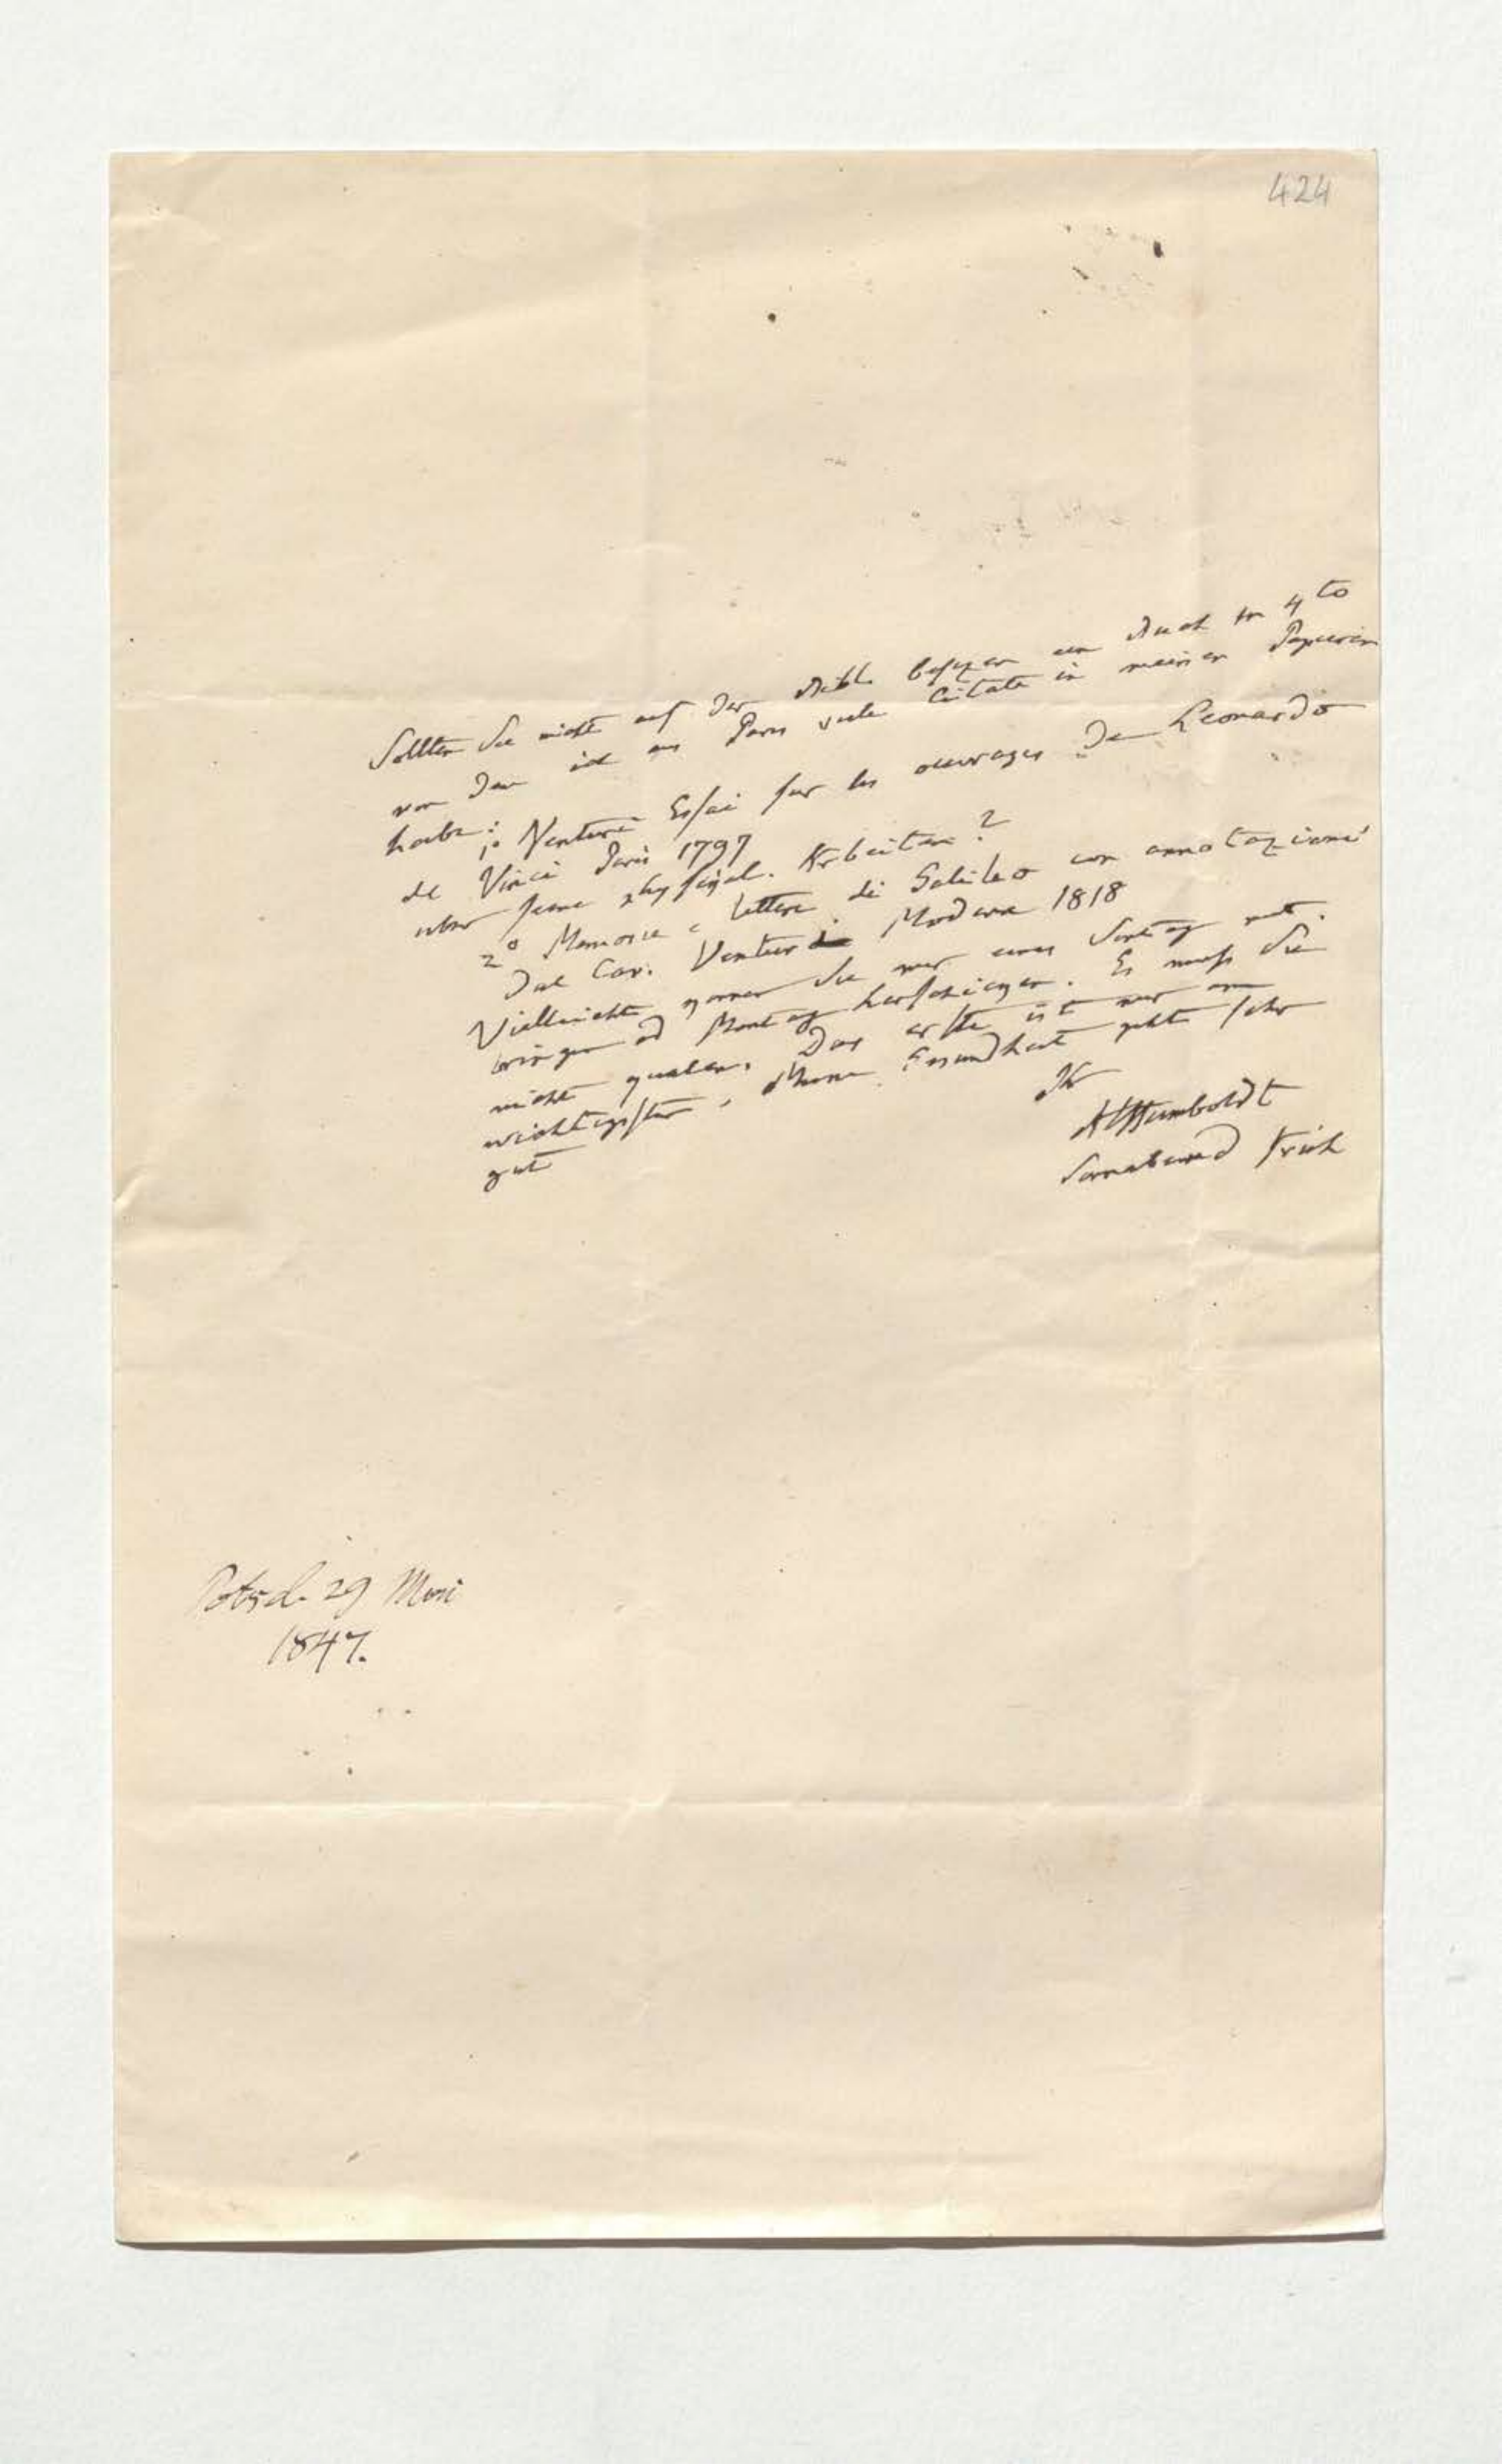 424
Sollten Sie nicht auf der Bibl. besizen ein Buch in 4to
von dem ich aus Paris viele Citate in meinen Papieren
habe:
1° Venturi Essai sur les ouvrages de Leonardo
de Vinci Paris 1797
über seine physikal. Arbeiten?
2° Memorie e lettere di Galileo con annotazioni
dal Cav. Venturi Modena 1818
Vielleicht können Sie mir eines Sontag mit
bringen od Montag herschicken. Es muß Sie
nicht quälen. Das erste ist mir am
wichtigsten. Meine Gesundheit geht sehr
gut
Ihr
AlHumboldt
Sonnabend Früh
Potsd. 29 Mai
1847.